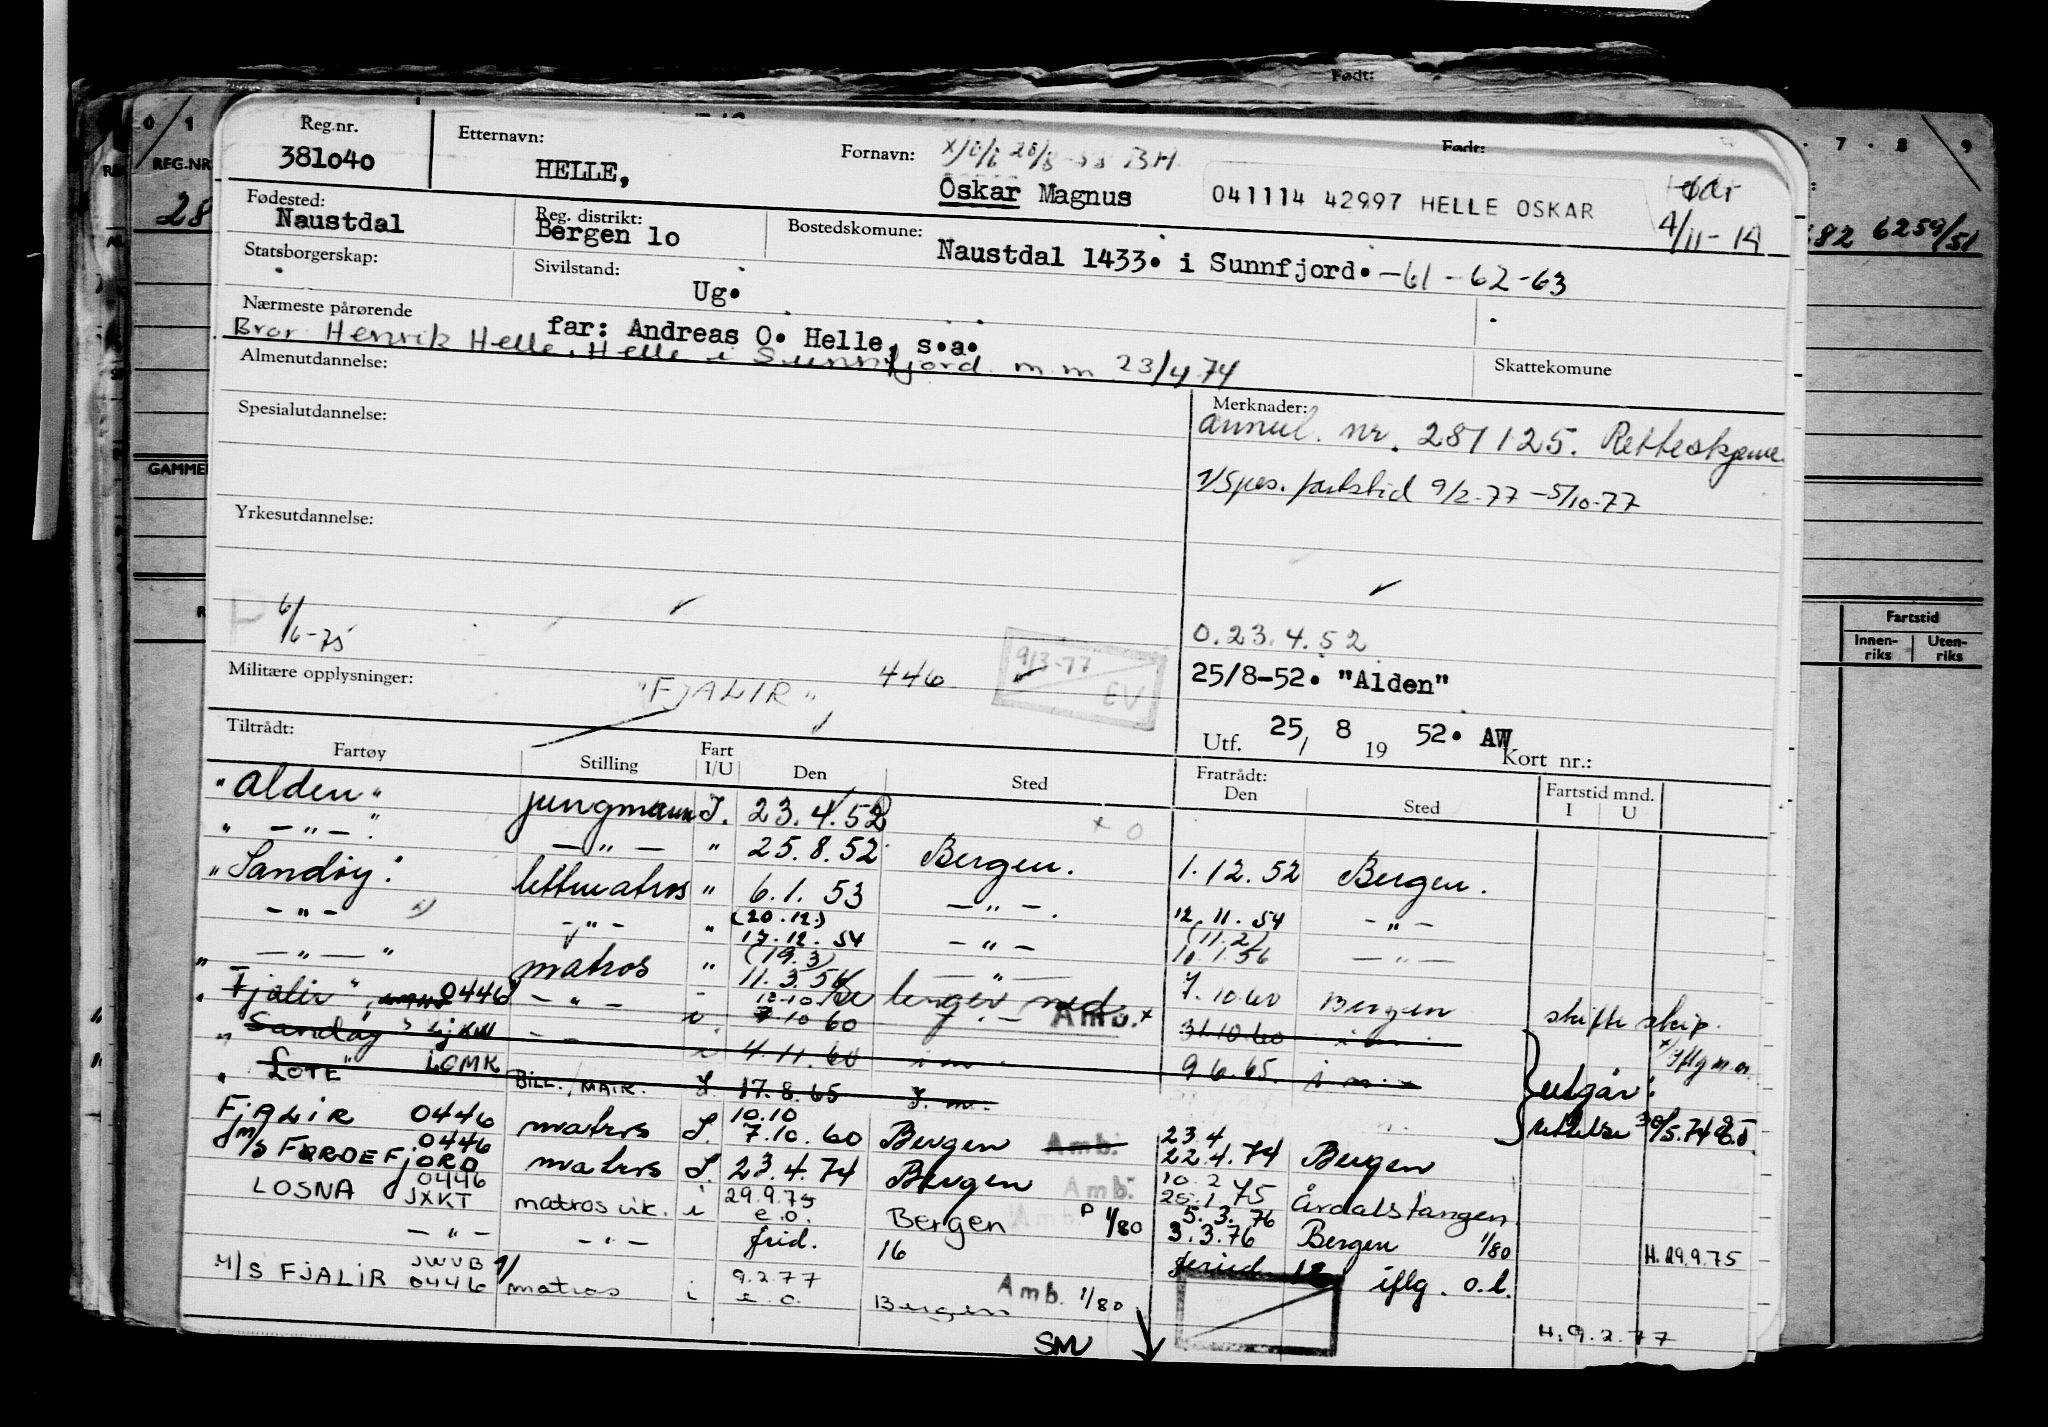 Født:
0 1
7 . 8 9
REG.NR
28
82 6259/51
GAMMEL
Fartstid
Innen-
riks
Uten-
riks
Reg.nr.
381040
Etternavn:
HELLE,
Fornavn:
BH
Oskar Magnus
Født:
041114 42997 HELLE OSKAR
4/11-14
Fødested:
Naustdal
Reg. distrikt:
Bergen 10
Bostedskomune:
Naustdal 1433. i Sunnfjord. -61-62-63
Statsborgerskap:
Sivilstand:
Ug.
Nærmeste pårørende
far: Andreas O. Helle, s.a.
Bror Henrik Helle, Helle i Sunnfjord m.m 23/4 74
Almenutdannelse:
Skattekomune
Spesialutdannelse:
Merknader:
annul. nr. 281125. Retteskjema
1/Spes. fartstid 9/2-77 - 5/10-77
Yrkesutdannelse:
6/6-75
0.23.4.52
9/3-77
EV
Militære opplysninger:
"FJALIR" 446
25/8-52. "Alden"
Utf. 25/ 8 19 52. AW
Kort nr.:
Tiltrådt:
Fartøy Stilling Fart I/U Den Sted Fratrådt: Den Sted Fartstid mnd. I U
"Alden" jungmann I. 23.4.52 x 0
" - " - " - " - " 25.8.52 Bergen. 1.12.52 Bergen.
"Sandøy" lettmatros " 6.1.53 - " - 12.11.54 - " -
- " - - " - " (20.12.) 17.12.54 - " - (11.2) 10.1.56 - " -
" - " - " matros " (19.3) 11.3.56 - " - 7.10.60 Bergen skifte skip.
"Fjalir" 0446 - " - 12.10 7.10 60 Amb. x 31.10.60 i.m. x/iflg m.m.
"Sandøy" LJKW - " - i 4.11.60 i m 9.6.65. i m. utgår:
"LOTE" LGMK BILL./MATR. I. 17.8.65 I. m. rettelse 30/5.74
FJALIR 0446 matros I. 10.10 7.10.60 Bergen Amb. 23.4 22.4.74 Bergen
M/S FØRDEFJORD 0446 matros I. 23.4.74 Bergen Amb. 10.2 26.1.75 Årdalstangen
LOSNA 0446 JXKT matros vik. i 29.9.75 e.o. Bergen Amb. P 1/80 5.3.76 3.3.76 Bergen 1/80 H.29.9.75
- " - - " - frid. 16 feried 12 iflg. o.l.
M/S FJALIR JWVB 0446 1/ matros i 9.2.77 e.o. Bergen Amb. 1/80
H.9.2.77
SMV